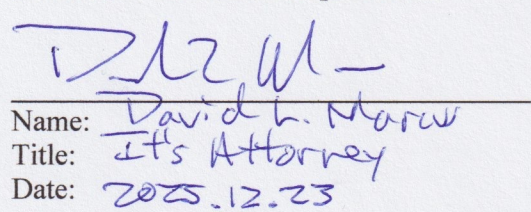 Name: David L. Marcus
Title: It's Attorney
Date: 2025.12.23